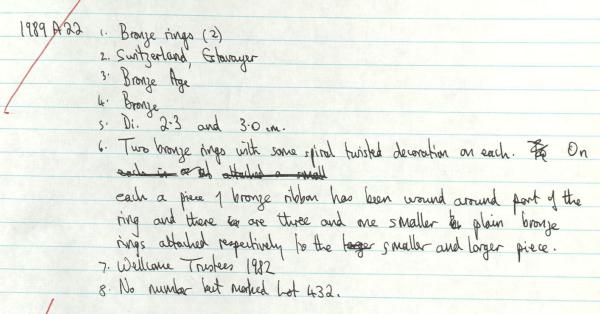 1989 A22 1. Bronze rings (2)
2. Switzerland, Estavayer
3. Bronze Age
4. Bronze
5. Di. 2.3 and 3.0 cm.
6. Two bronze rings with some spiral twisted decoration on each. On
each attached a small
each a piece of bronze ribbon has been wound around part of the
ring and there are three and one smaller plain bronze
rings attached respectively to the larger smaller and larger piece.
7. Wellcome Trustees 1982
8. No number but marked Lot 432.